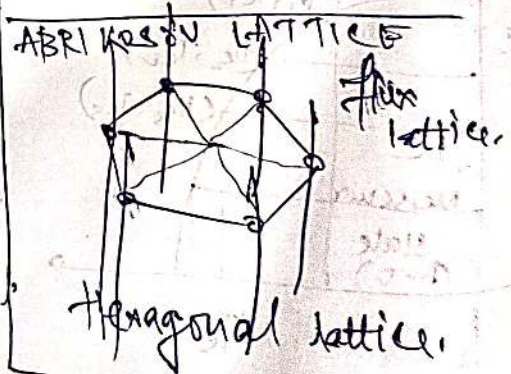 ABRIKOSOV LATTICE
flux
lattice.
Hexagonal lattice.